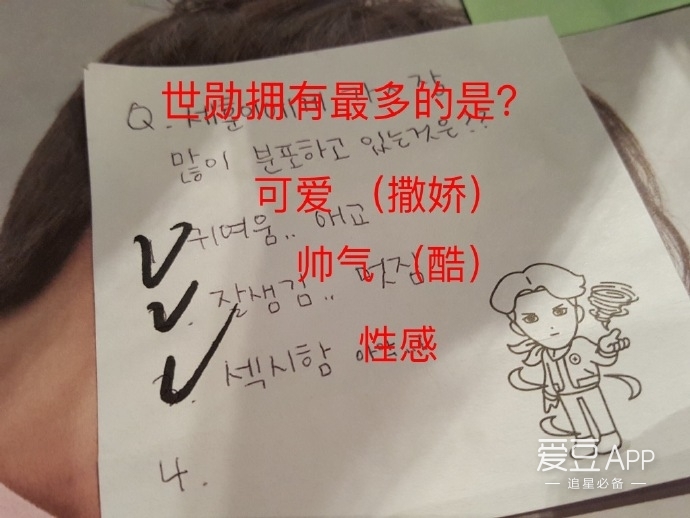 世勋拥有最多的是？
Q. 세훈이에게 가장
많이 분포하고 있는것은??
可爱 （撒娇）
귀여움.. 애교
帅气（酷）
잘생김.. 멋짐
性感
섹시함
4.
爱豆 APP
追星必备